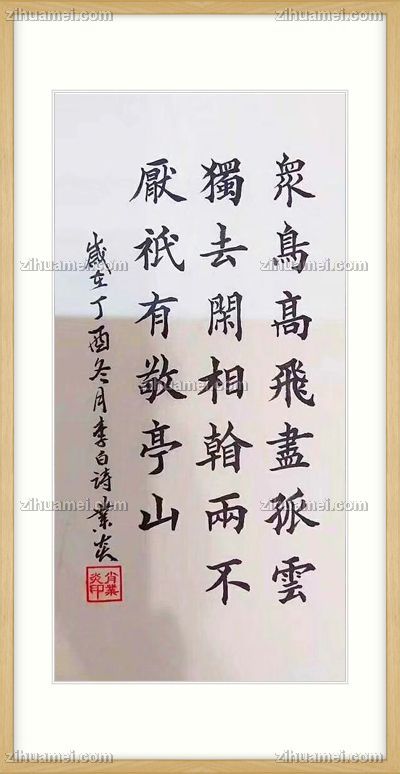 zihuamei.com zihuamei.com
眾鳥髙飛盡孤雲
獨去閑相翰兩不
厭祇有敬亭山
歲在丁酉冬月李白诗業炎
肖業炎印
zihuamei.com zihuamei.com
zihuamei.com zihuamei.com
zihuamei.com
zihuamei.com zihuamei.com
zihuamei.com zihuamei.com